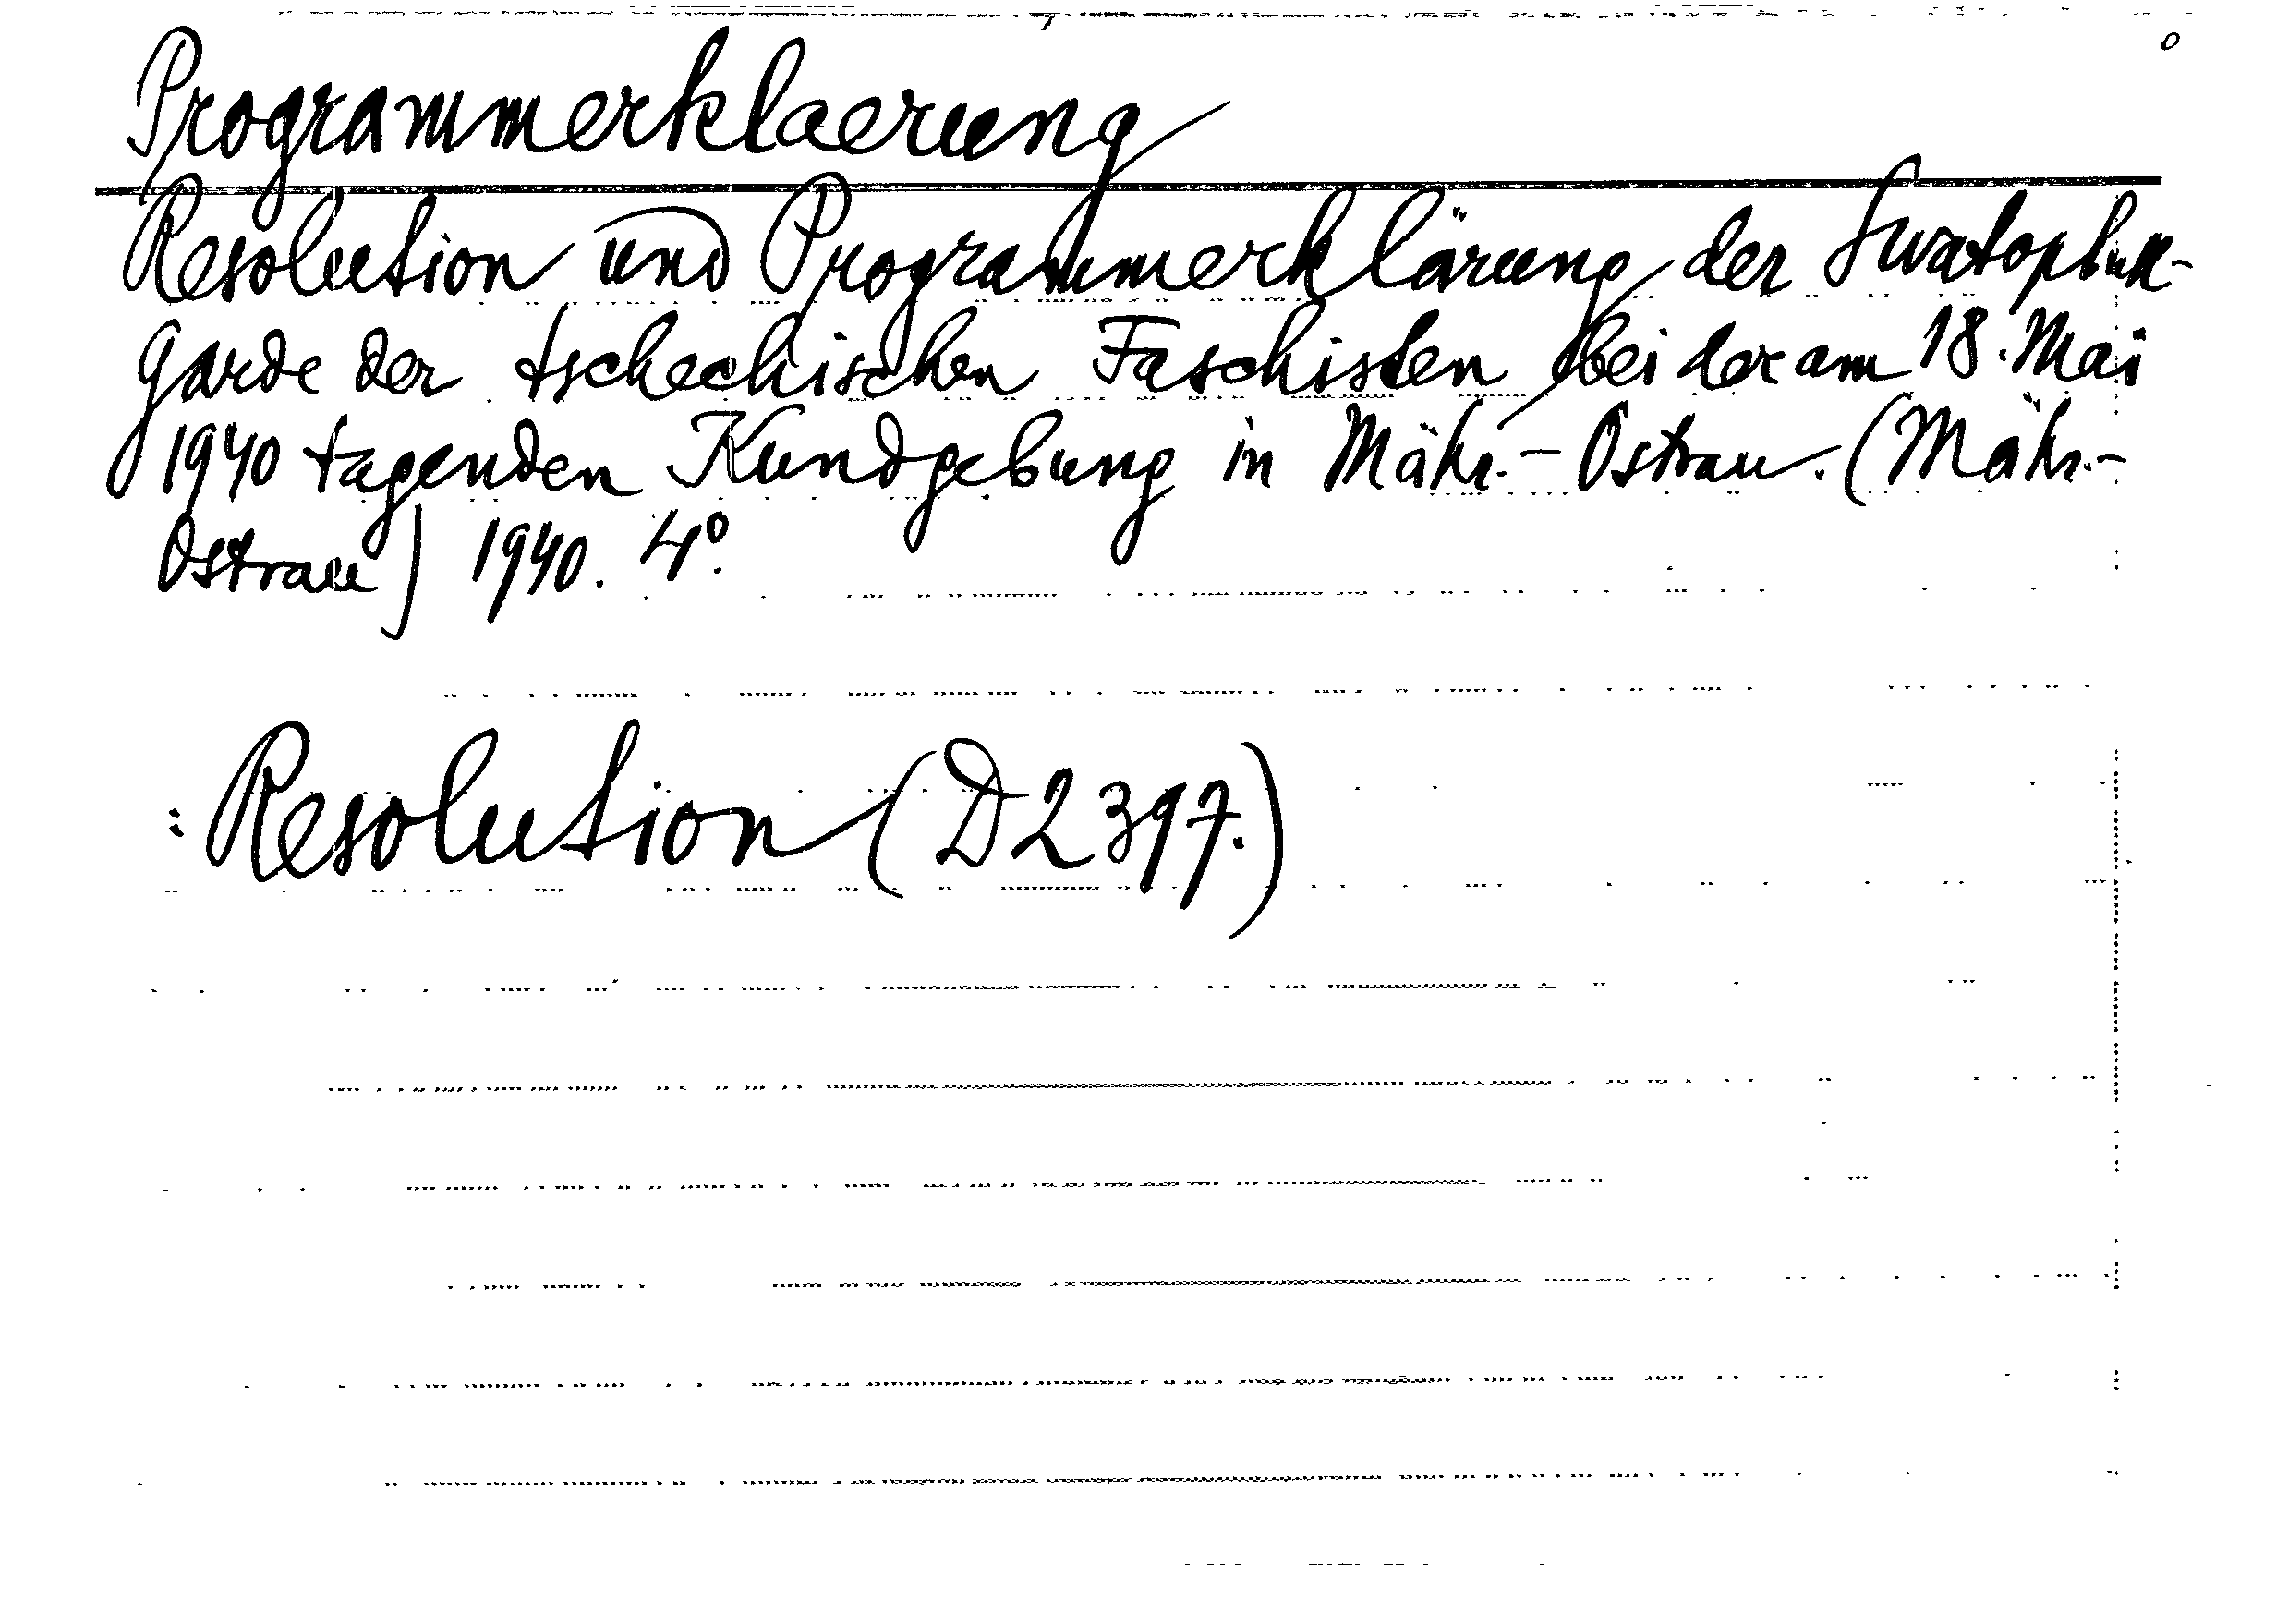 Programmerklaerung
Resolution und Programmerklärung der Swatopluk-
garde der tschechischen Faschisten bei der am 18. Mai
1940 tagenden Kundgebung in Mähr.-Ostrau. (Mähr.-
Ostrau) 1940. 4°.
: Resolution (D2397.)